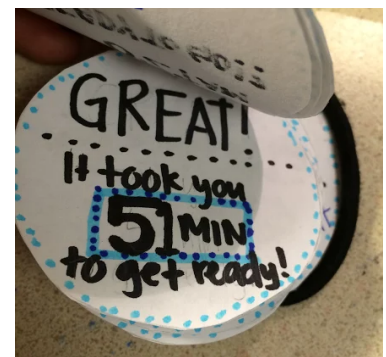 GREAT!
It took you
51 MIN
to get ready!